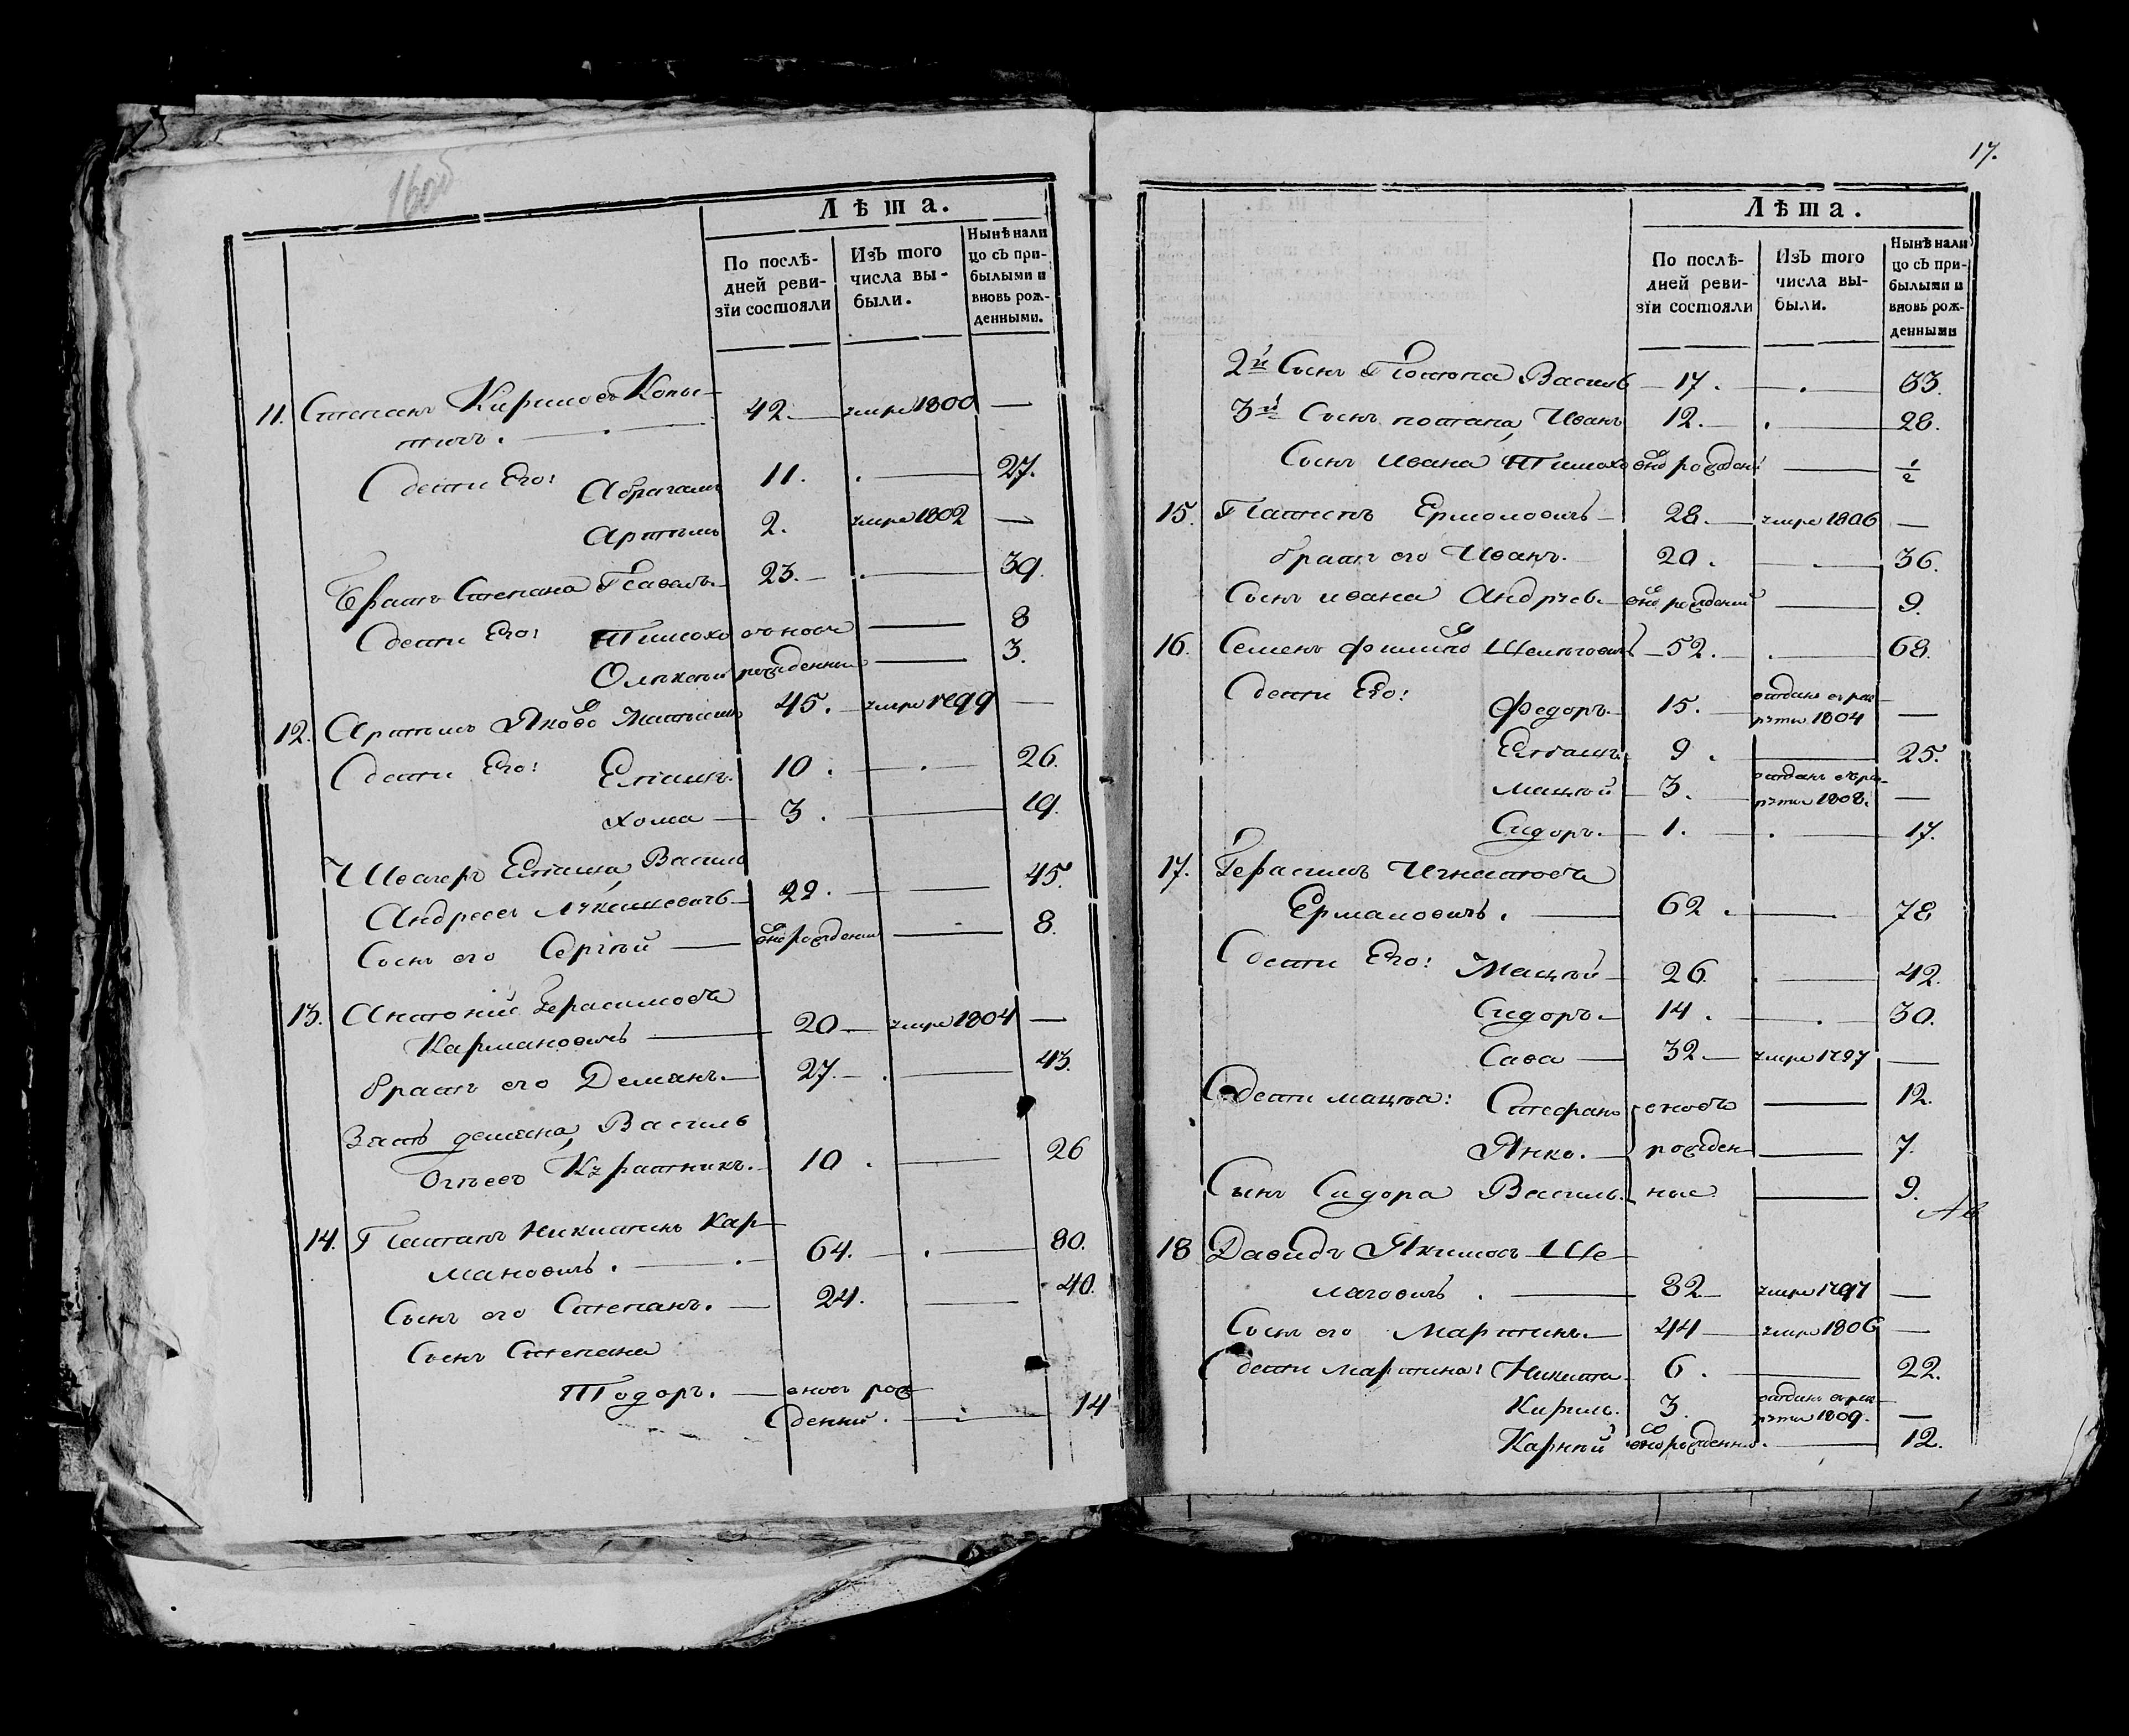 16об
Лѣта.
По послѣ-
дней реви-
зїи состояли
Изъ того
числа вы-
были.
Нынѣ нали
цо съ при-
былыми и
вновь рож-
денными.
11. Степанъ Кириловъ Копы-
тичъ. 42. умре 1800 —
Дѣти Его: Абрагамъ 11. — 27.
Артымъ 2. умре 1802 —
Братъ Степана Павелъ 23. — 39.
Дѣти Его: Тимохъ вновъ — 8
Олѣксѣй рожденный — 3.
12. Артымъ Яковъ 45. умре 1799 —
Дѣти Его: Елiашъ 10. — 26.
Хома 3. — 19.
Швагеръ Елiаша, Василь
Андреевъ 29. — 45.
Сынъ его Сергѣй внов рожденный — 8.
13. Антоній Герасимовъ
Кармановичъ 20 — умре 1804 —
братъ его Демянъ 27. — 43.
Зять демяна, Василь
10. — 26
14. Потапъ Никитинъ Кар-
мановичъ. 64. — 80.
Сынъ его Степанъ. 24. — 40.
Сынъ Степана
Тодоръ. — вновь рож-
денный. — 14
17.
Лѣта.
По послѣ-
дней реви-
зїи состояли
Изъ того
числа вы-
были.
Нынѣ нали
цо съ при-
былыми и
вновь рож-
денными
2й Сынъ Потапа Василь — 17. — 33.
3й Сынъ потапа, Иванъ 12. — 28.
Сынъ Ивана Тимохъ внов рожденый — 1/2
15. Ермоловичъ — 28. — умре 1806 —
братъ его Иванъ. 20. — 36.
Сынъ ивана Андрѣе внов рожденый — 9.
16. Семенъ Шемеговичъ — 52. — 68.
Дѣти Его: Федоръ 15. отданъ в рек
руты 1804 —
Елiашъ 9. — 25.
Мацѣй 3. отданъ в рек-
руты 1808. —
Сидоръ 1. — 17.
17. Герасимъ Игнатовъ
Ермановичъ. 62. — 78
Дѣти Его: Мацѣй 26. — 42.
Сидоръ 14. — 30.
Сава 32 — умре 1797 —
Дѣти мацѣя: Стефанъ вновь — 12.
Янко. рожден — 7.
Сынъ Сидора Василь. ные — 9.
18 Давидъ Якимовъ Ше-
маговичъ. 82 — умре 1797 —
Сынъ его Мартинъ 44 — умре 1806 —
Дѣти мартина: Никита 6. — 22.
Кирилъ. 3. отданъ в рек-
руты 1809. —
Карнѣй внов рожденный. — 12.